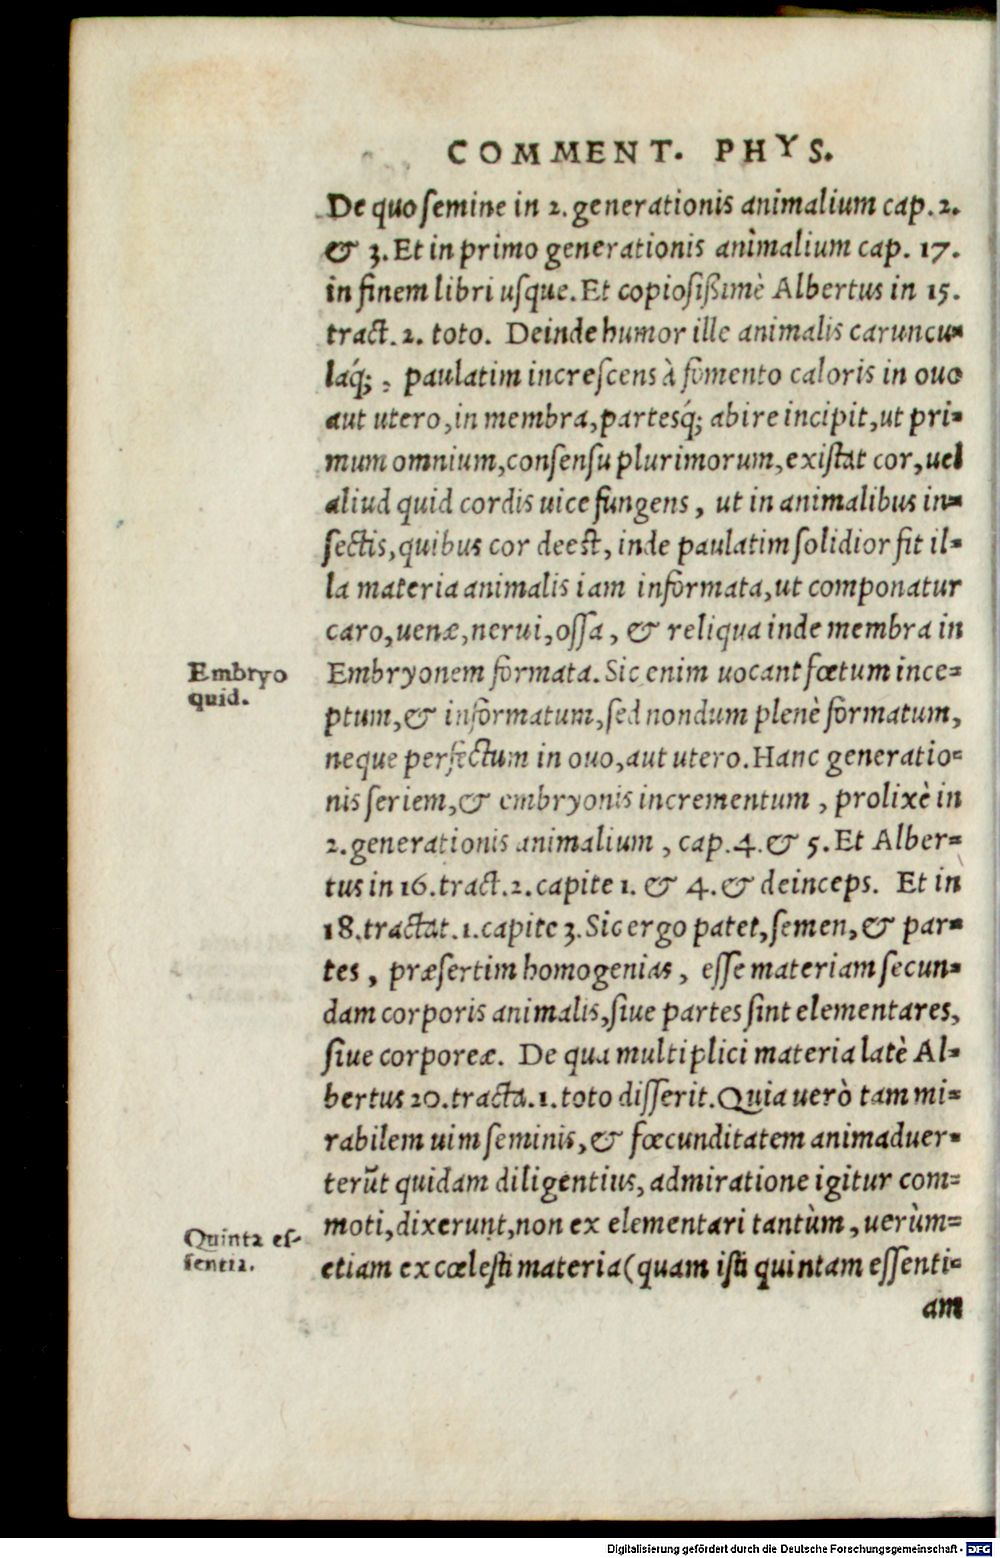 COMMENT. PHYS.
De quo ſemine in 2. generationis animalium cap. 2.
& 3. Et in primo generationis animalium cap. 17.
in finem libri uſque. Et copioſißimè Albertus in 15.
tract. 2. toto. Deinde humor ille animalis caruncu-
laq́;, paulatim increſcens à fomento caloris in ouo
aut utero, in membra, partesq́; abire incipit, ut pri-
mum omnium, conſenſu plurimorum, exiſtat cor, uel
aliud quid cordis uice fungens, ut in animalibus in-
ſectis, quibus cor deeſt, inde paulatim ſolidior fit il-
la materia animalis iam informata, ut componatur
caro, uenæ, nerui, oſſa, & reliqua inde membra in
Embryo
quid.
Embryonem formata. Sic enim uocant fœtum ince-
ptum, & informatum, ſed nondum plenè formatum,
neque perfectum in ouo, aut utero. Hanc generatio-
nis ſeriem, & embryonis incrementum, prolixè in
2. generationis animalium, cap. 4. & 5. Et Alber-
tus in 16. tract. 2. capite 1. & 4. & deinceps. Et in
18. tractat. 1. capite 3. Sic ergo patet, ſemen, & par-
tes, præſertim homogenias, eſſe materiam ſecun-
dam corporis animalis, ſiue partes ſint elementares,
ſiue corporeæ. De qua multiplici materia latè Al-
bertus 20. tracta. 1. toto diſſerit. Quia uerò tam mi-
rabilem uim ſeminis, & fœcunditatem animaduer-
terũt quidam diligentius, admiratione igitur com-
moti, dixerunt, non ex elementari tantùm, uerùm-
Quinta eſ-
ſentia.
etiam ex cœleſti materia (quam iſti quintam eſſenti-
am
Digitalisierung gefördert durch die Deutsche Forschungsgemeinschaft - DFG